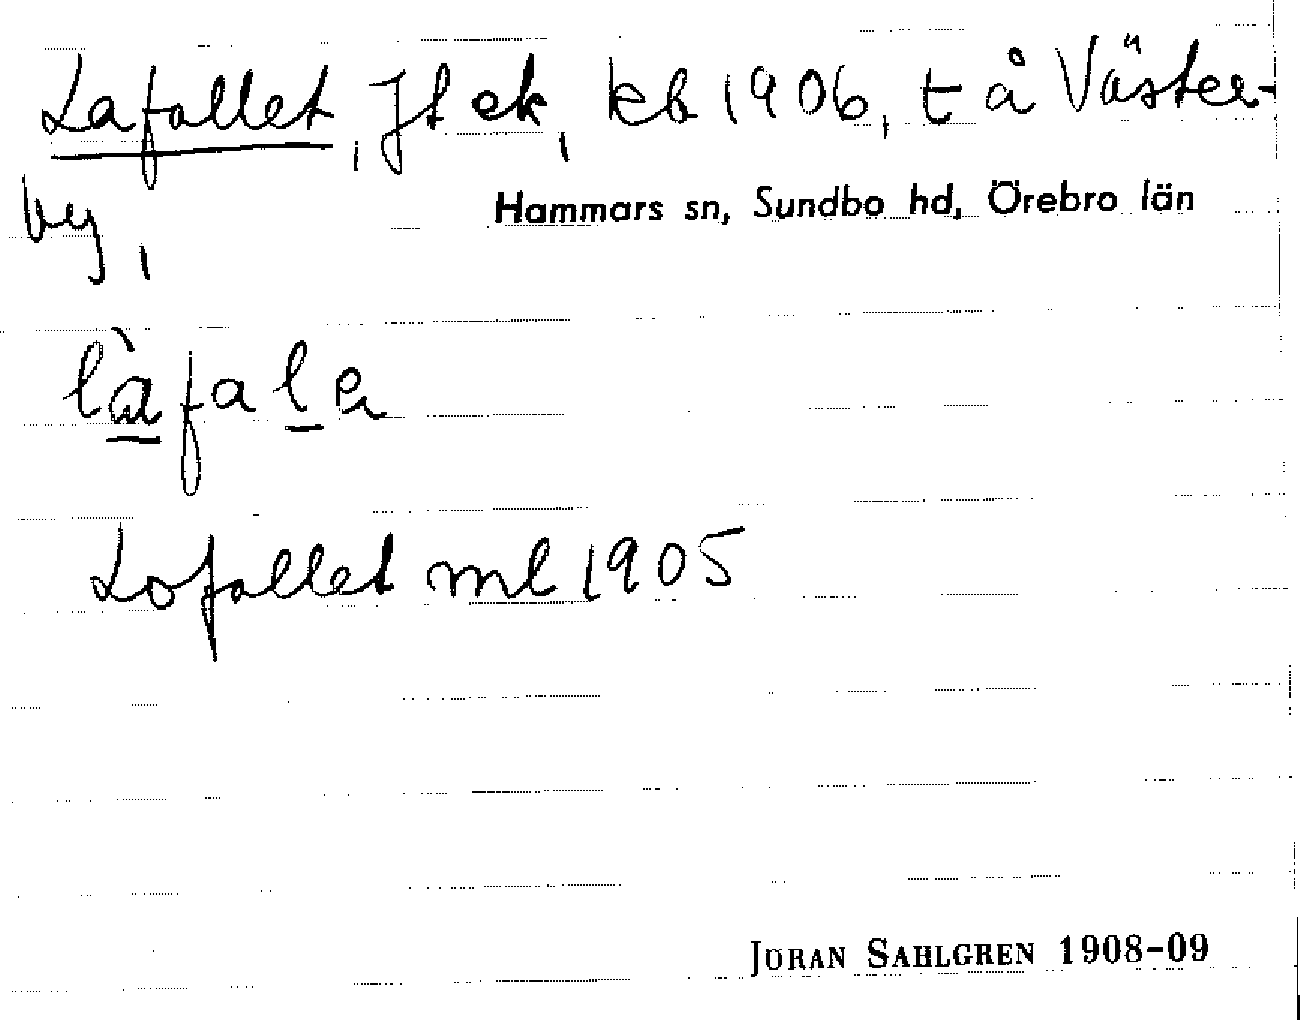 Lafallet, Jt ek, kb 1906, t å Väster-
by,
Hammars sn, Sundbo hd, Örebro län
làfalə
Lofallet ml 1905
JÖRAN SAHLGREN 1908-09